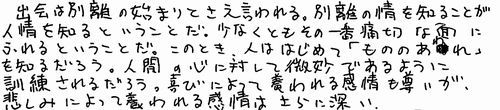 出会は別離の始まりとさえ言われる。別離の情を知ることが
人情を知るということだ。少なくともその一番痛切な面に
ふれるということだ。このとき、人ははじめて「もののあわれ」
を知るだろう。人間の心に対して微妙であるように
訓練されるだろう。喜びによって養われる感情も尊いが、
悲しみによって養われる感情はさらに深い.